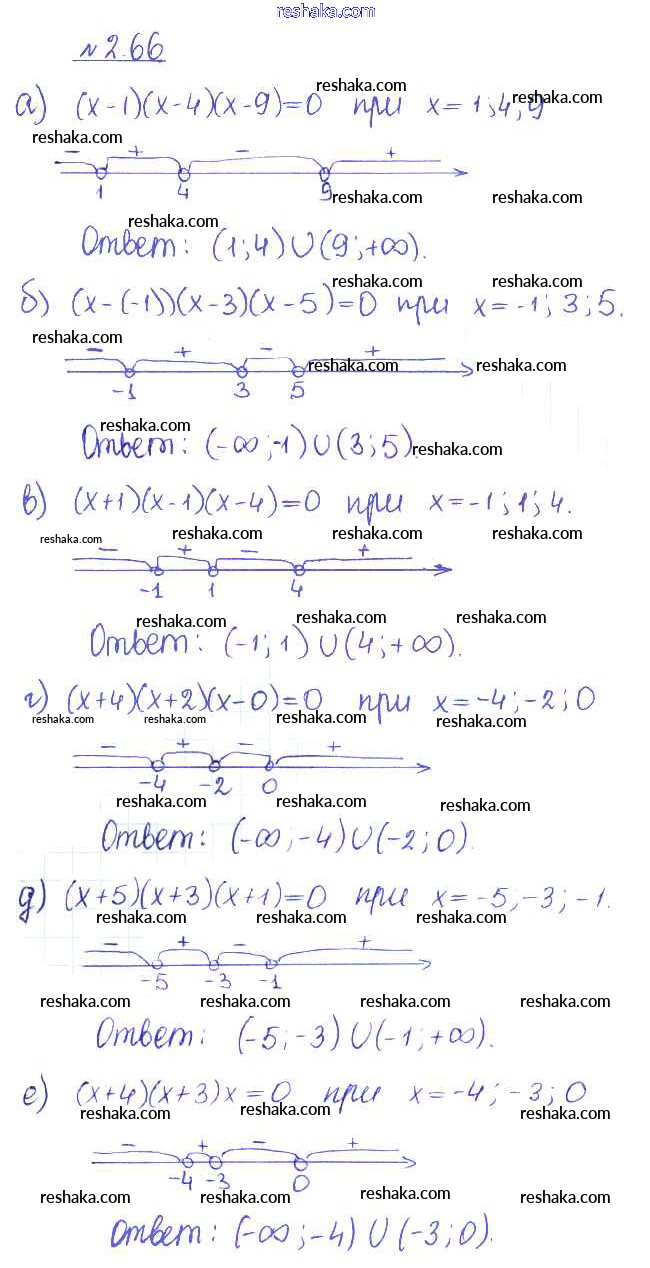 reshaka.com
№ 2.66
а) (x-1)(x-4)(x-9)=0 при x= 1; 4; 9
reshaka.com reshaka.com
reshaka.com
− + − +
1 4 9
reshaka.com reshaka.com
reshaka.com
Ответ: (1; 4)∪(9; +∞).
reshaka.com reshaka.com
б) (x-(-1))(x-3)(x-5)=0 при x=-1; 3; 5.
reshaka.com reshaka.com reshaka.com
− + − +
reshaka.com reshaka.com
-1 3 5
reshaka.com
Ответ: (-∞; -1)∪(3; 5).
reshaka.com
в) (x+1)(x-1)(x-4)=0 при x=-1; 1; 4.
reshaka.com reshaka.com reshaka.com
− + − +
-1 1 4
reshaka.com reshaka.com reshaka.com
Ответ: (-1; 1)∪(4; +∞).
г) (x+4)(x+2)(x-0)=0 при x=-4; -2; 0
reshaka.com reshaka.com reshaka.com reshaka.com
− + − +
-4 -2 0
reshaka.com reshaka.com reshaka.com
Ответ: (-∞; -4)∪(-2; 0).
д) (x+5)(x+3)(x+1)=0 при x=-5; -3; -1.
reshaka.com reshaka.com reshaka.com
− + − +
-5 -3 -1
reshaka.com reshaka.com reshaka.com reshaka.com
Ответ: (-5; -3)∪(-1; +∞).
е) (x+4)(x+3)x=0 при x=-4; -3; 0
reshaka.com reshaka.com reshaka.com
− + − +
-4 -3 0
reshaka.com reshaka.com reshaka.com reshaka.com
Ответ: (-∞; -4)∪(-3; 0).